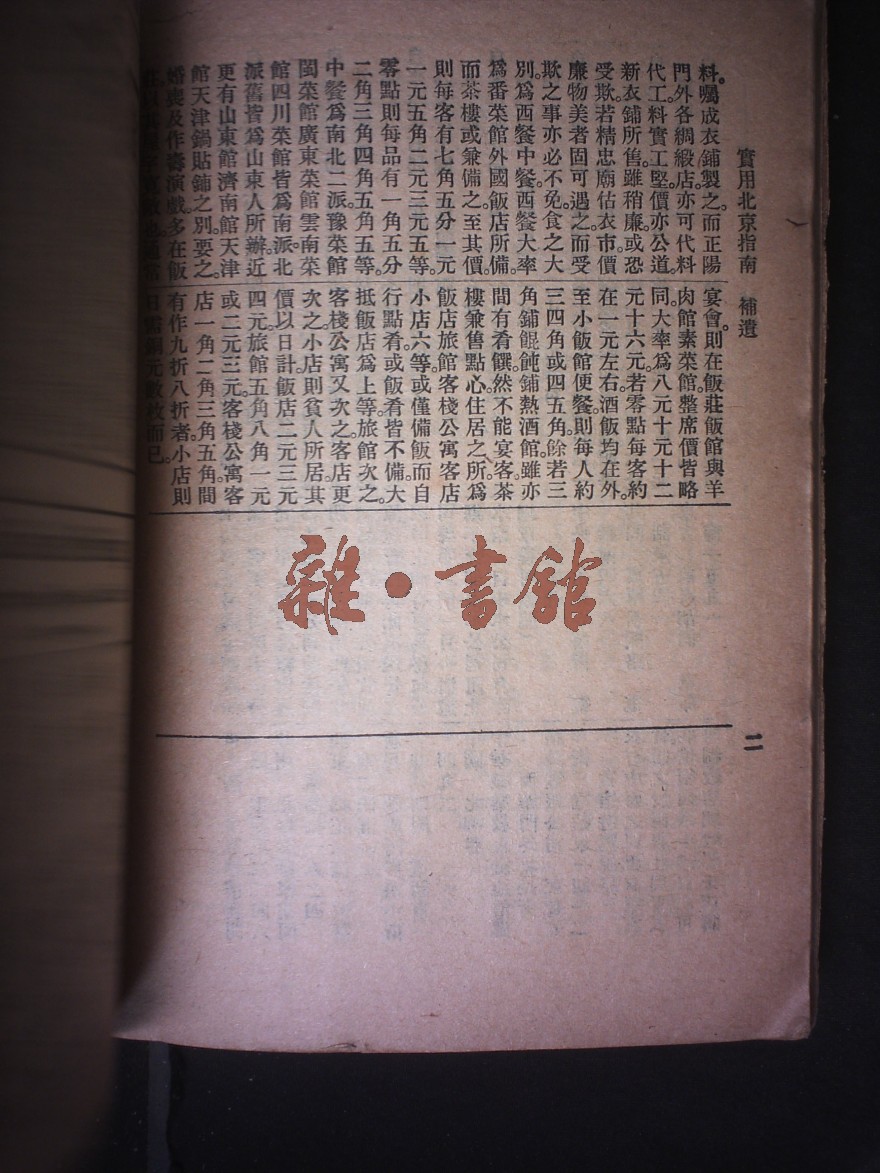 實用北京指南　補遺
料。囑成衣鋪製之。而正陽
門外各綢緞店。亦可代料
代工。料實工堅。價亦公道。
新衣鋪所售。雖稍廉。或恐
受欺。若精忠廟估衣市。價
廉物美者。固可遇之。而受
欺之事。亦必不免。食之大
別。爲西餐中餐。西餐大率
爲番菜館外國飯店所備。
而茶樓或兼備之。至其價。
則每客有七角五分一元
一元五角二元三元五等。
零點則每品有一角五分
二角三角四角五角五等。
中餐爲南北二派。豫菜館
閩菜館廣東菜館雲南菜
館四川菜館皆爲南派。北
派舊皆爲山東人所辦。近
更有山東館濟南館天津
館天津鍋貼鋪之別。要之。
婚喪及作壽演戲。多在飯
宴會。則在飯莊飯館與羊
肉館素菜館。整席價皆略
同。大率爲八元十元十二
元十六元。若零點。每客約
在一元左右。酒飯均在外。
至小飯館便餐。則每人約
三四角或四五角。餘若三
角鋪餛飩鋪熱酒館。雖亦
間有肴饌。然不能宴客。茶
樓兼售點心。住居之所。爲
飯店旅館客棧公寓客店
小店六等。或僅備飯而自
行點肴。或飯肴皆不備。大
抵飯店爲上等。旅館次之。
客棧公寓又次之。客店更
次之。小店則貧人所居。其
價以日計。飯店二元三元
四元。旅館五角八角一元
或二元三元。客棧公寓客
店一角二角三角五角。間
有作九折八折者。小店則
日需銅元數枚而已。
雜•書館
二